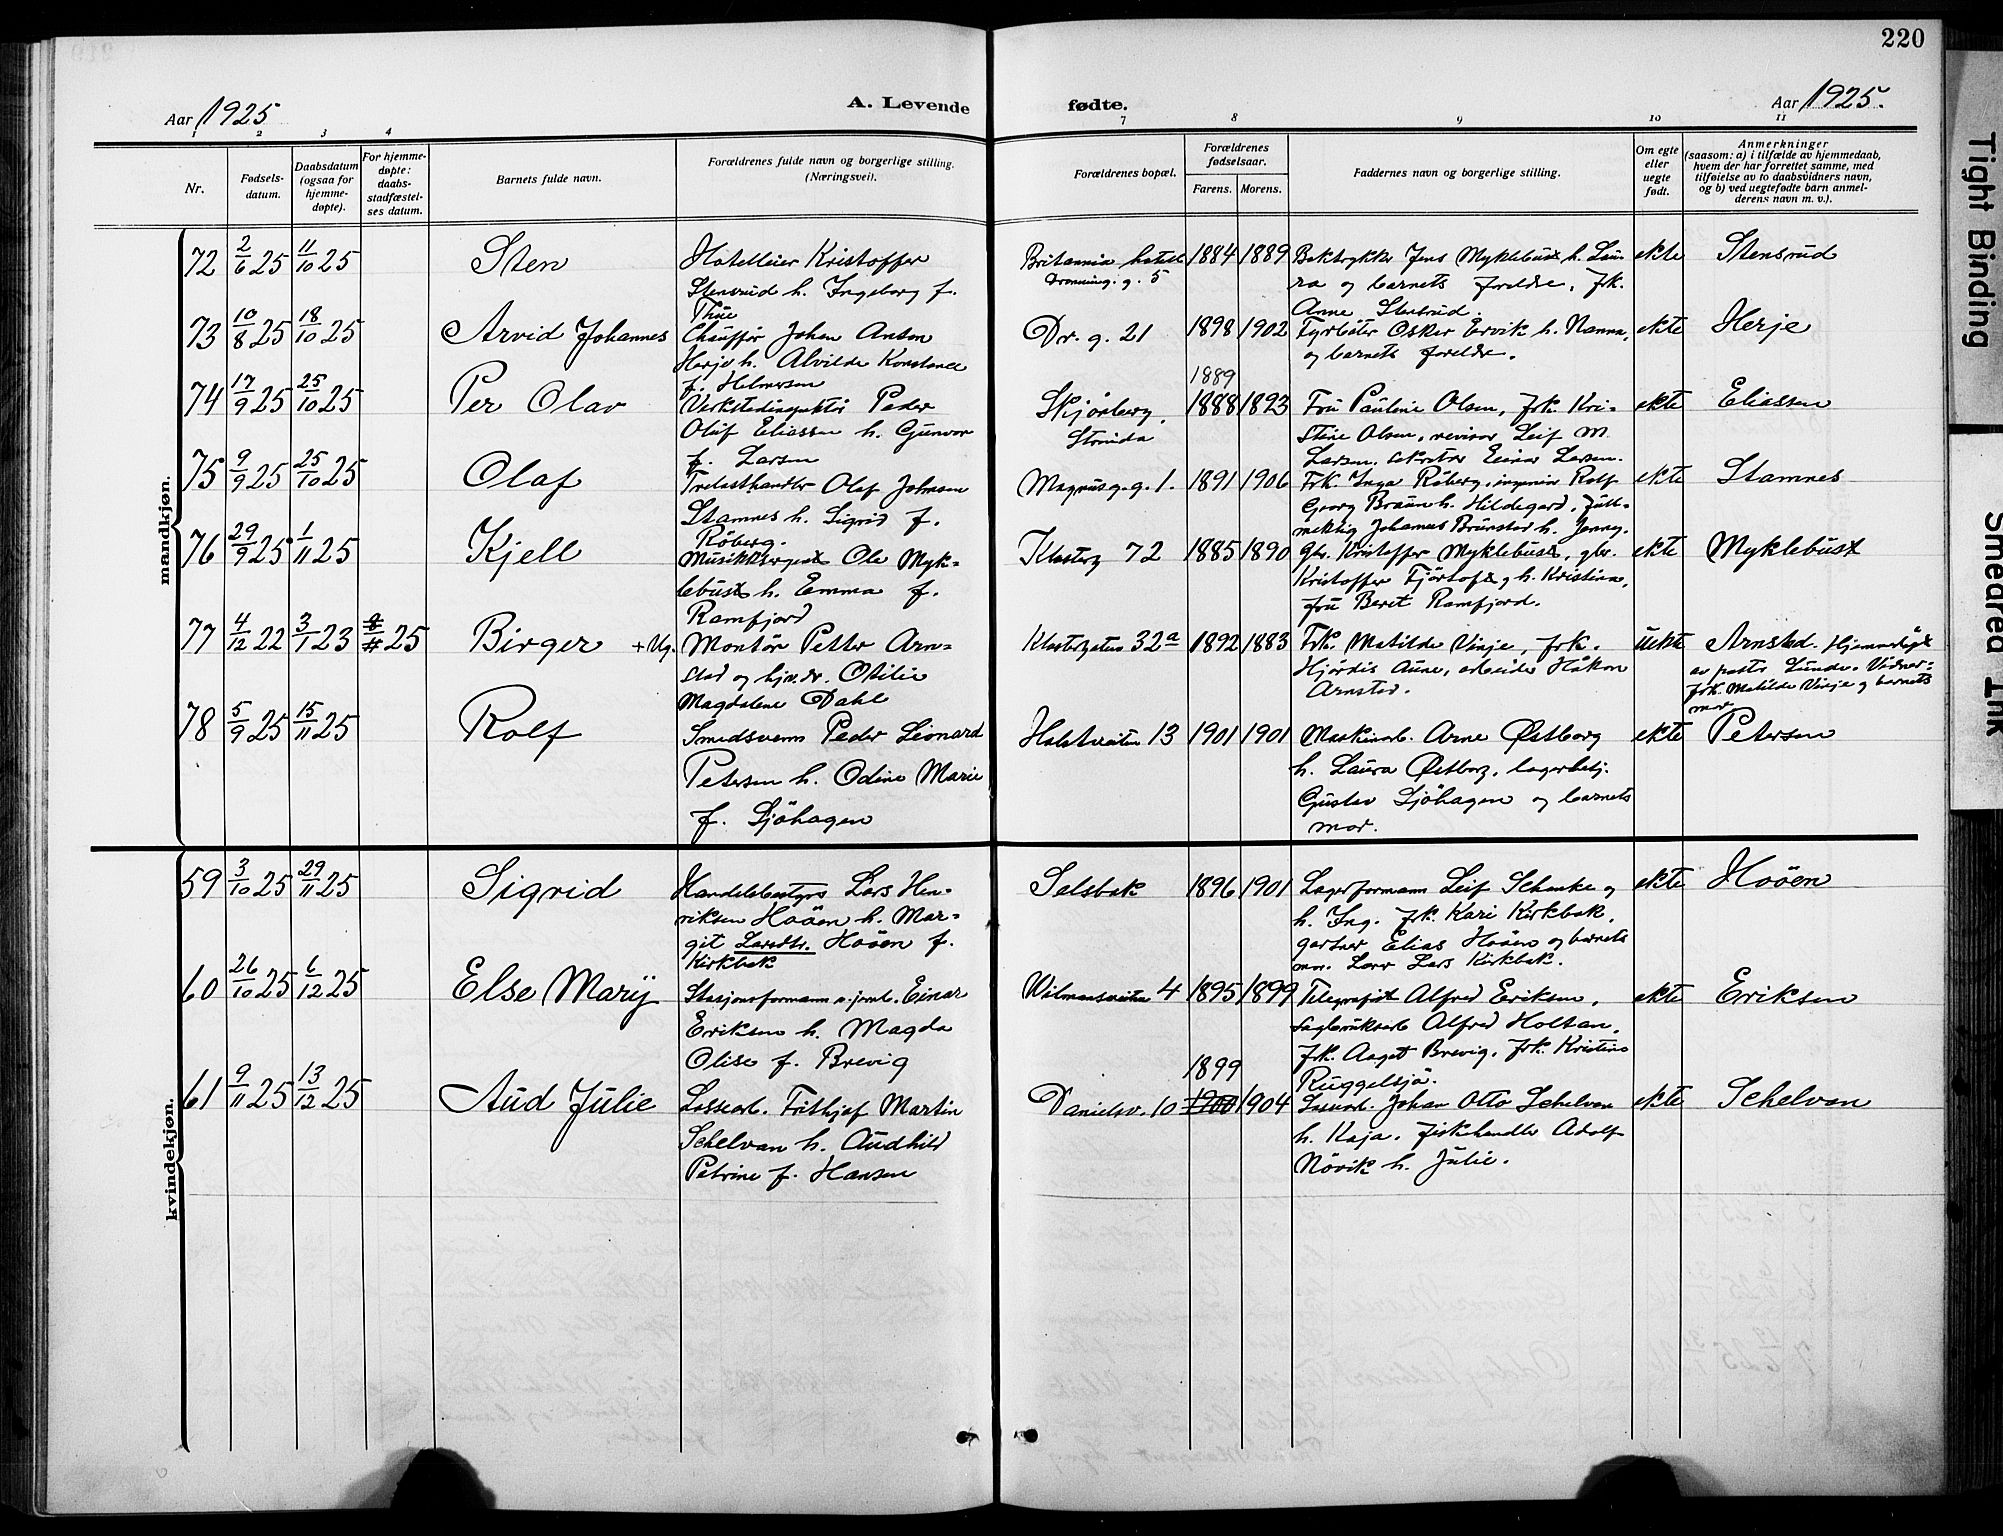 220
Aar 1925
A. Levende
fødte.
Aar 1925.
1 2 3 4 7 8 9 10 11
Nr.
Fødsels-
datum.
Daabsdatum
(ogsaa for
hjemme-
døpte).
For hjemme-
døpte:
daabs-
stadfæstel-
ses datum.
Barnets fulde navn.
Forældrenes fulde navn og borgerlige stilling.
(Næringsvei).
Forældrenes bopæl.
Forældrenes
fødselsaar.
Farens. Morens.
Faddernes navn og borgerlige stilling.
Om egte
eller
uegte
født.
Anmerkninger
(saasom: a) i tilfælde av hjemmedaab,
hvem der har forrettet samme, med
tilføielse av to daabsvidners navn,
og b) ved uegtefødte barn anmel-
derens navn m. v.).
mandkjøn.
72 2/6 25 11/10 25 Sten
Hotelleier Kristoffer
Stensrud h. Ingeborg f.
Thue
Britannia hotel
Dronning. g. 5
1884 1889
Boktrykker Jens Myklebust h. Lau-
ra og barnets foreldre, frk.
Anne Stensrud.
ekte Stensrud
73 10/8 25 18/10 25 Arvid Johannes
Chauffør Johan Anton
Herje h. Alvilde Konstance
f. Helmersen
Dr. g. 21
1898 1902
Fyrbøter Oskar Ervik h. Nanna,
og barnets foreldre.
ekte Herje
74 17/9 25 25/10 25 Per Olav
Verkstedinspektør Peder
Oluf Eliassen h. Gunvor
f. Larsen
Skjørberg,
Strinda
1889
1888 1893
Fru Pauline Olsen, frk. Kri-
stine Olsen, revisor Leif M.
Larsen, sekretær Einar Larsen.
ekte Eliassen
75 9/9 25 25/10 25 Olaf
Trelasthandler Olaf Johnsen
Stamnes h. Sigrid f.
Røberg.
Magnusg. g. 1.
1891 1906
Frk. Inga Røberg, ingeniør Rolf
Georg Braun h. Hildegard, full-
mektig Johannes Brunstad h. Jenny.
ekte Stamnes
76 29/9 25 1/11 25 Kjell
Musikksergeat Ole Myk-
lebust h. Emma f.
Ramfjord
Klosterg 72
1885 1890
Gbr. Kristoffer Myklebust, gbr.
Kristoffer Fjörtoft, h. Kristina,
fru Beret Ramfjord.
ekte Myklebust
77 4/12 22 3/1 23 8/11 25 Birger + Ug.
Montør Petter Arn-
stad og hjv. dr. Otilie
Magdalene Dahl
Klostergaten 32a
1892 1883
Frk. Matilde Vinje, frk.
Hjördis Aune, arbeider Håkon
Arnstad.
uekte Arnstad. Hjemmedöpt
av pastor Lunde. Vidner:
frk. Matilde Vinje og barnets
mor
78 5/9 25 15/11 25 Rolf
Smedsvenn Peder Leonard
Petersen h. Odine Marie
f. Sjöhagen
Holstveiten 13
1901 1901
Maskinarb. Arne Østborg
h. Laura Østborg, lagerbetj.
Gustav Sjöhagen og barnets
mor.
ekte Petersen
kvindekjøn.
59 3/10 25 29/11 25 Sigrid
Handelsbestyrer Lars Hen-
riksen Hoöen h. Mar-
git Larsdtr. Hoöen f.
Kirkbak
Salsbak
1896 1901
Lagerformann Leif Schanke og
h. Ing. frk. Kari Kirkbak,
gartner Elias Hoöen og barnets
mor. Lærer Lars Kirkbak.
ekte Hoöen
60 26/10 25 6/12 25 Else Marÿ
Stasjonsformann v. jernb. Einar
Eriksen h. Magda
Olise f. Brevig
Wilmansveiten 4
1895 1899
Telegrafist Alfred Eriksen,
sagbruksarb Alfred Holtan,
frk. Aagot Brevig, frk. Kristine
Ruggelsjö.
ekte Eriksen
61 9/11 25 13/12 25 Aud Julie
Lossearb. Frithjof Martin
Schelvan h. Audhild
Petrine f. Hansen
Danielsv. 10
1899
1900 1904
Lossearb. Johan Otto Schelvan
h. Kaja. Fiskehandler Adolf
Növik h. Julie.
ekte Schelvan
Tight Binding
Smeared Ink